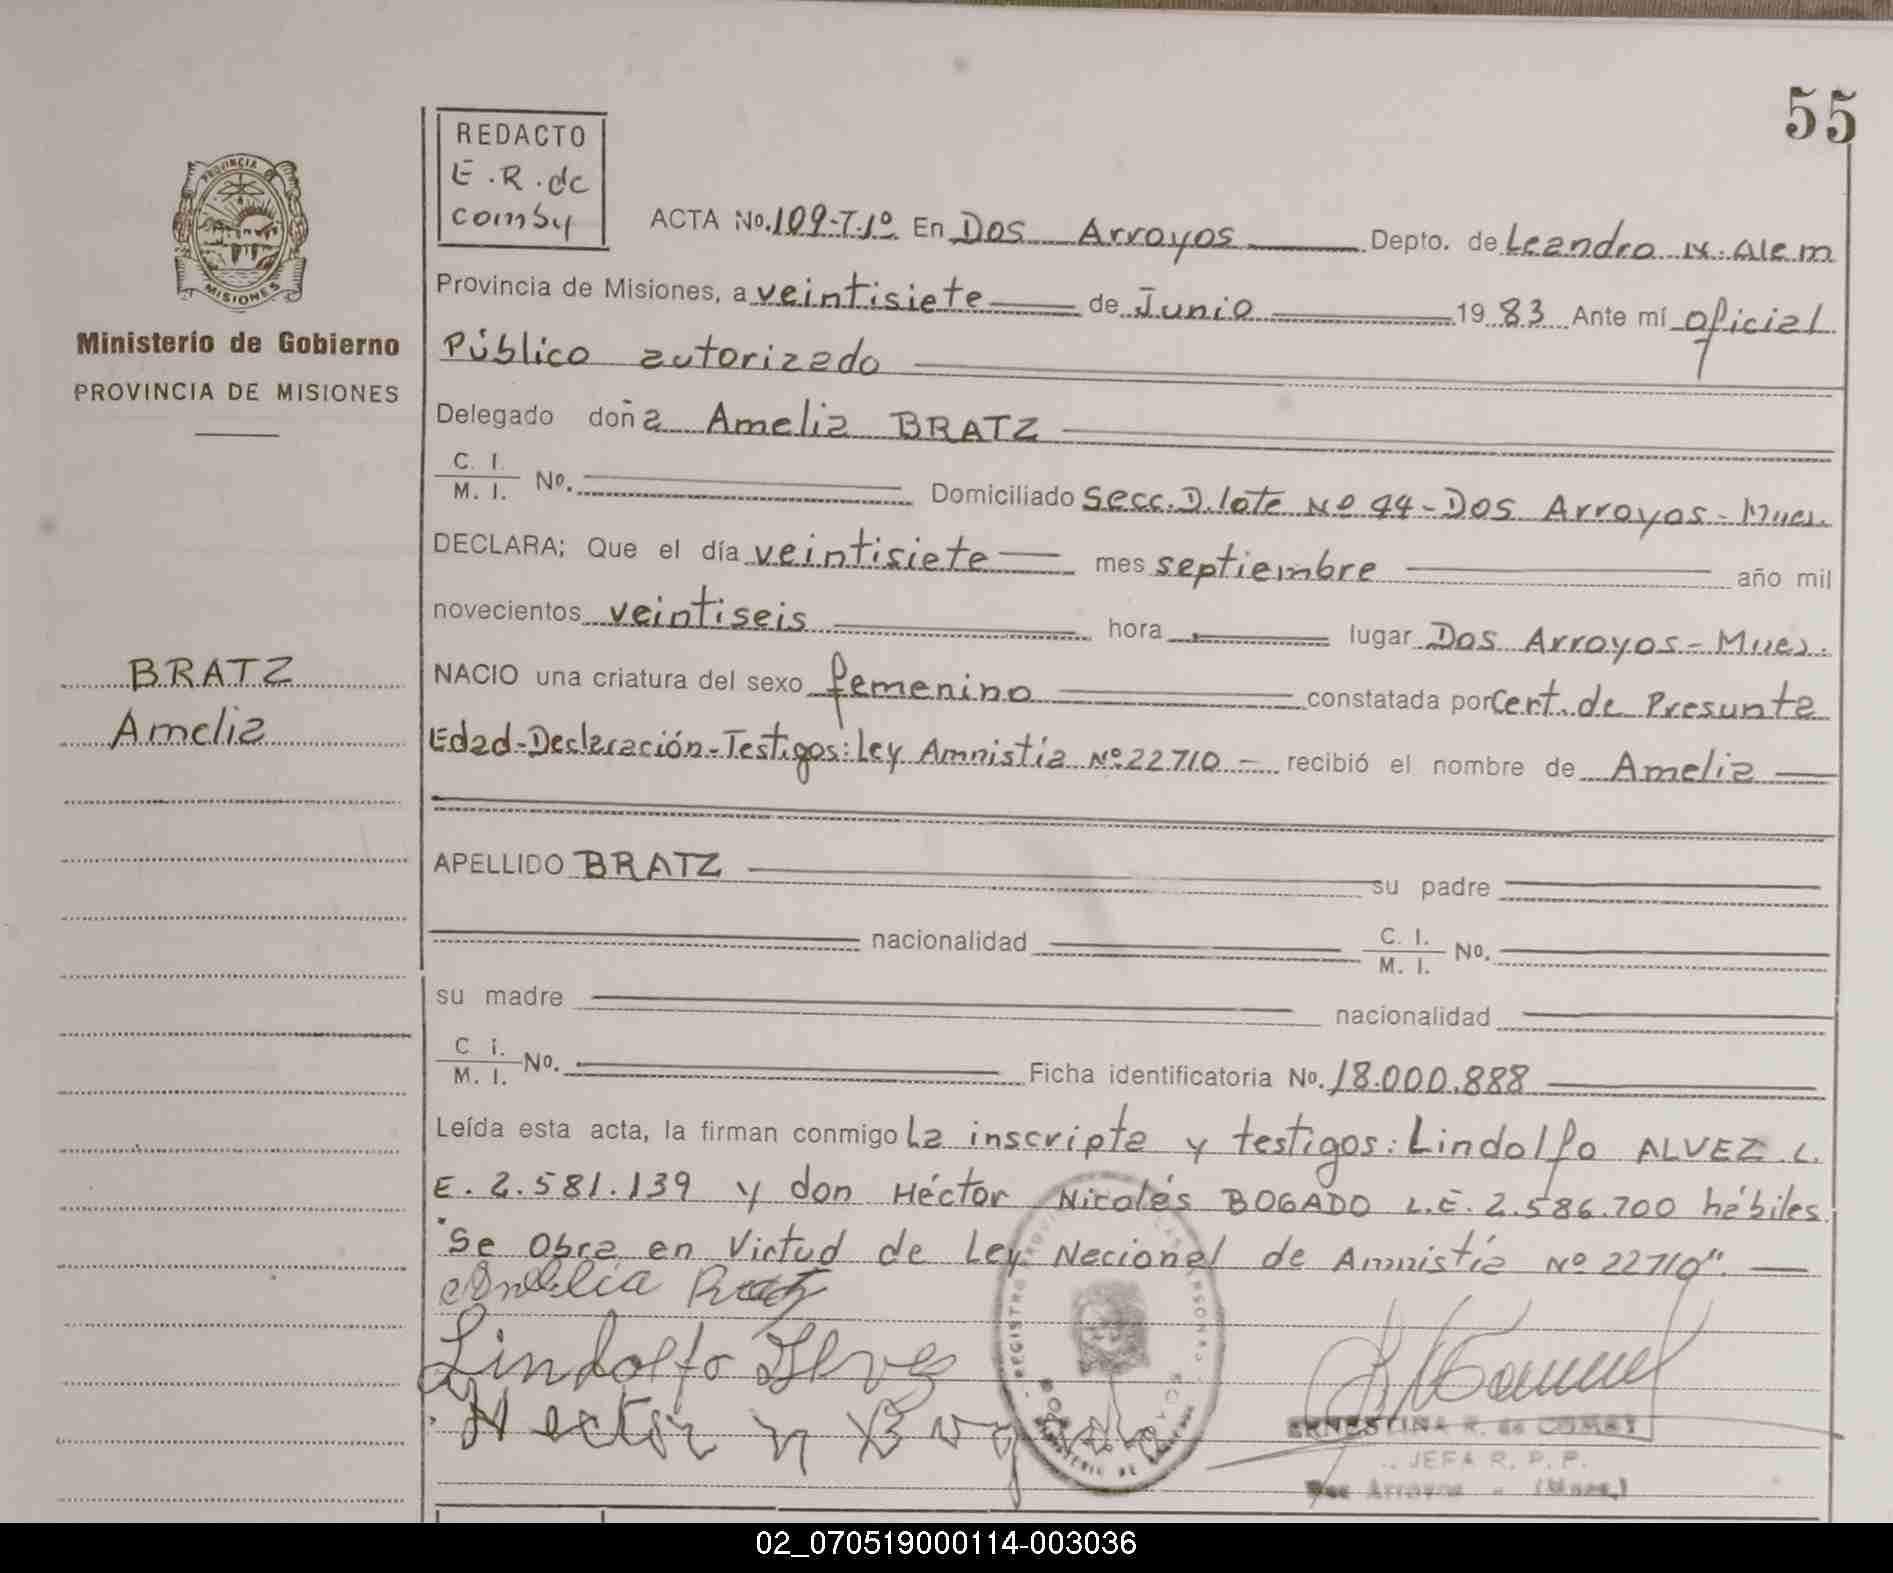 55
REDACTO
E.R.de
comby
PROVINCIA
MISIONES
Ministerio de Gobierno
PROVINCIA DE MISIONES
ACTA No. 109-T.1º En Dos Arroyos Depto. de Leandro N. Alem
Provincia de Misiones, a veintisiete de Junio 1983 Ante mí oficial
Público autorizado
Delegado doña Amelia BRATZ
C. I.
M. I. No. Domiciliado Secc. D. lote Nº 44-Dos Arroyos - Mnes.
DECLARA; Que el día veintisiete mes septiembre año mil
novecientos veintiseis hora lugar Dos Arroyos - Mnes.
BRATZ
Amelia
NACIO una criatura del sexo femenino constatada por Cert. de Presunta
Edad-Declaración-Testigos: Ley Amnistía Nº 22710 - recibió el nombre de Amelia
APELLIDO BRATZ su padre
nacionalidad C. I.
M. I. No.
su madre nacionalidad
C I.
M. I. No. Ficha identificatoria No. 18.000.888
Leída esta acta, la firman conmigo La inscripta y testigos: Lindolfo ALVEZ L.
E. 2.581.139 y don Héctor Nicolás BOGADO L.E. 2.586.700 hábiles.
"Se Obra en Virtud de Ley Nacional de Amnistía Nº 22710".
Amelia Bratz
Lindolfo Alves
Hector N Bogado
ERNESTINA R. de COMBY
JEFA R. P. P.
Dos Arroyos - (Mnes.)
02_070519000114-003036